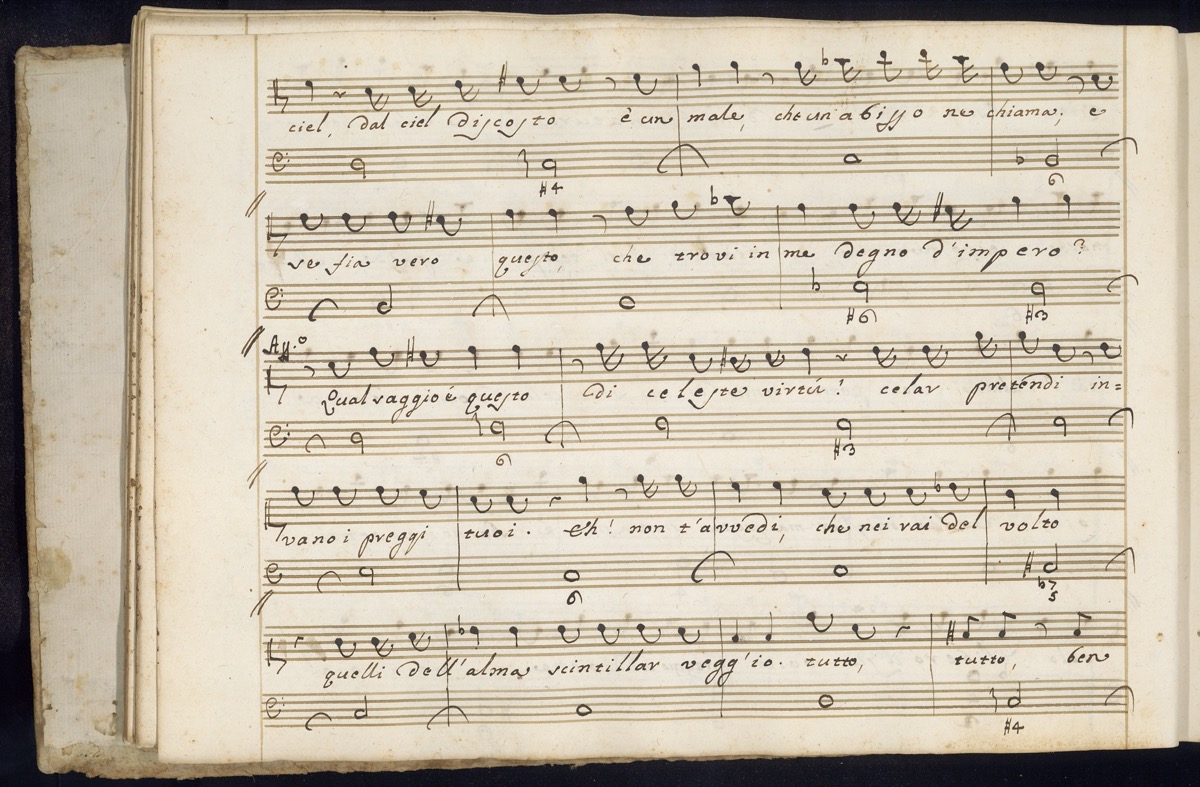 ciel, dal ciel discosto è un male, che un'abisso ne chiama; e
#4 6
se fia vero questo, che trovi in me degno d'impero?
#6 #3
Ag.o
Qual raggio è questo di celeste virtù! celar pretendi in=
6 #3
vano i preggi tuoi. Eh! non t'avvedi, che nei rai del volto
6 b7 5
quelli dell'alma scintillar vegg'io. tutto, tutto, ben
#4